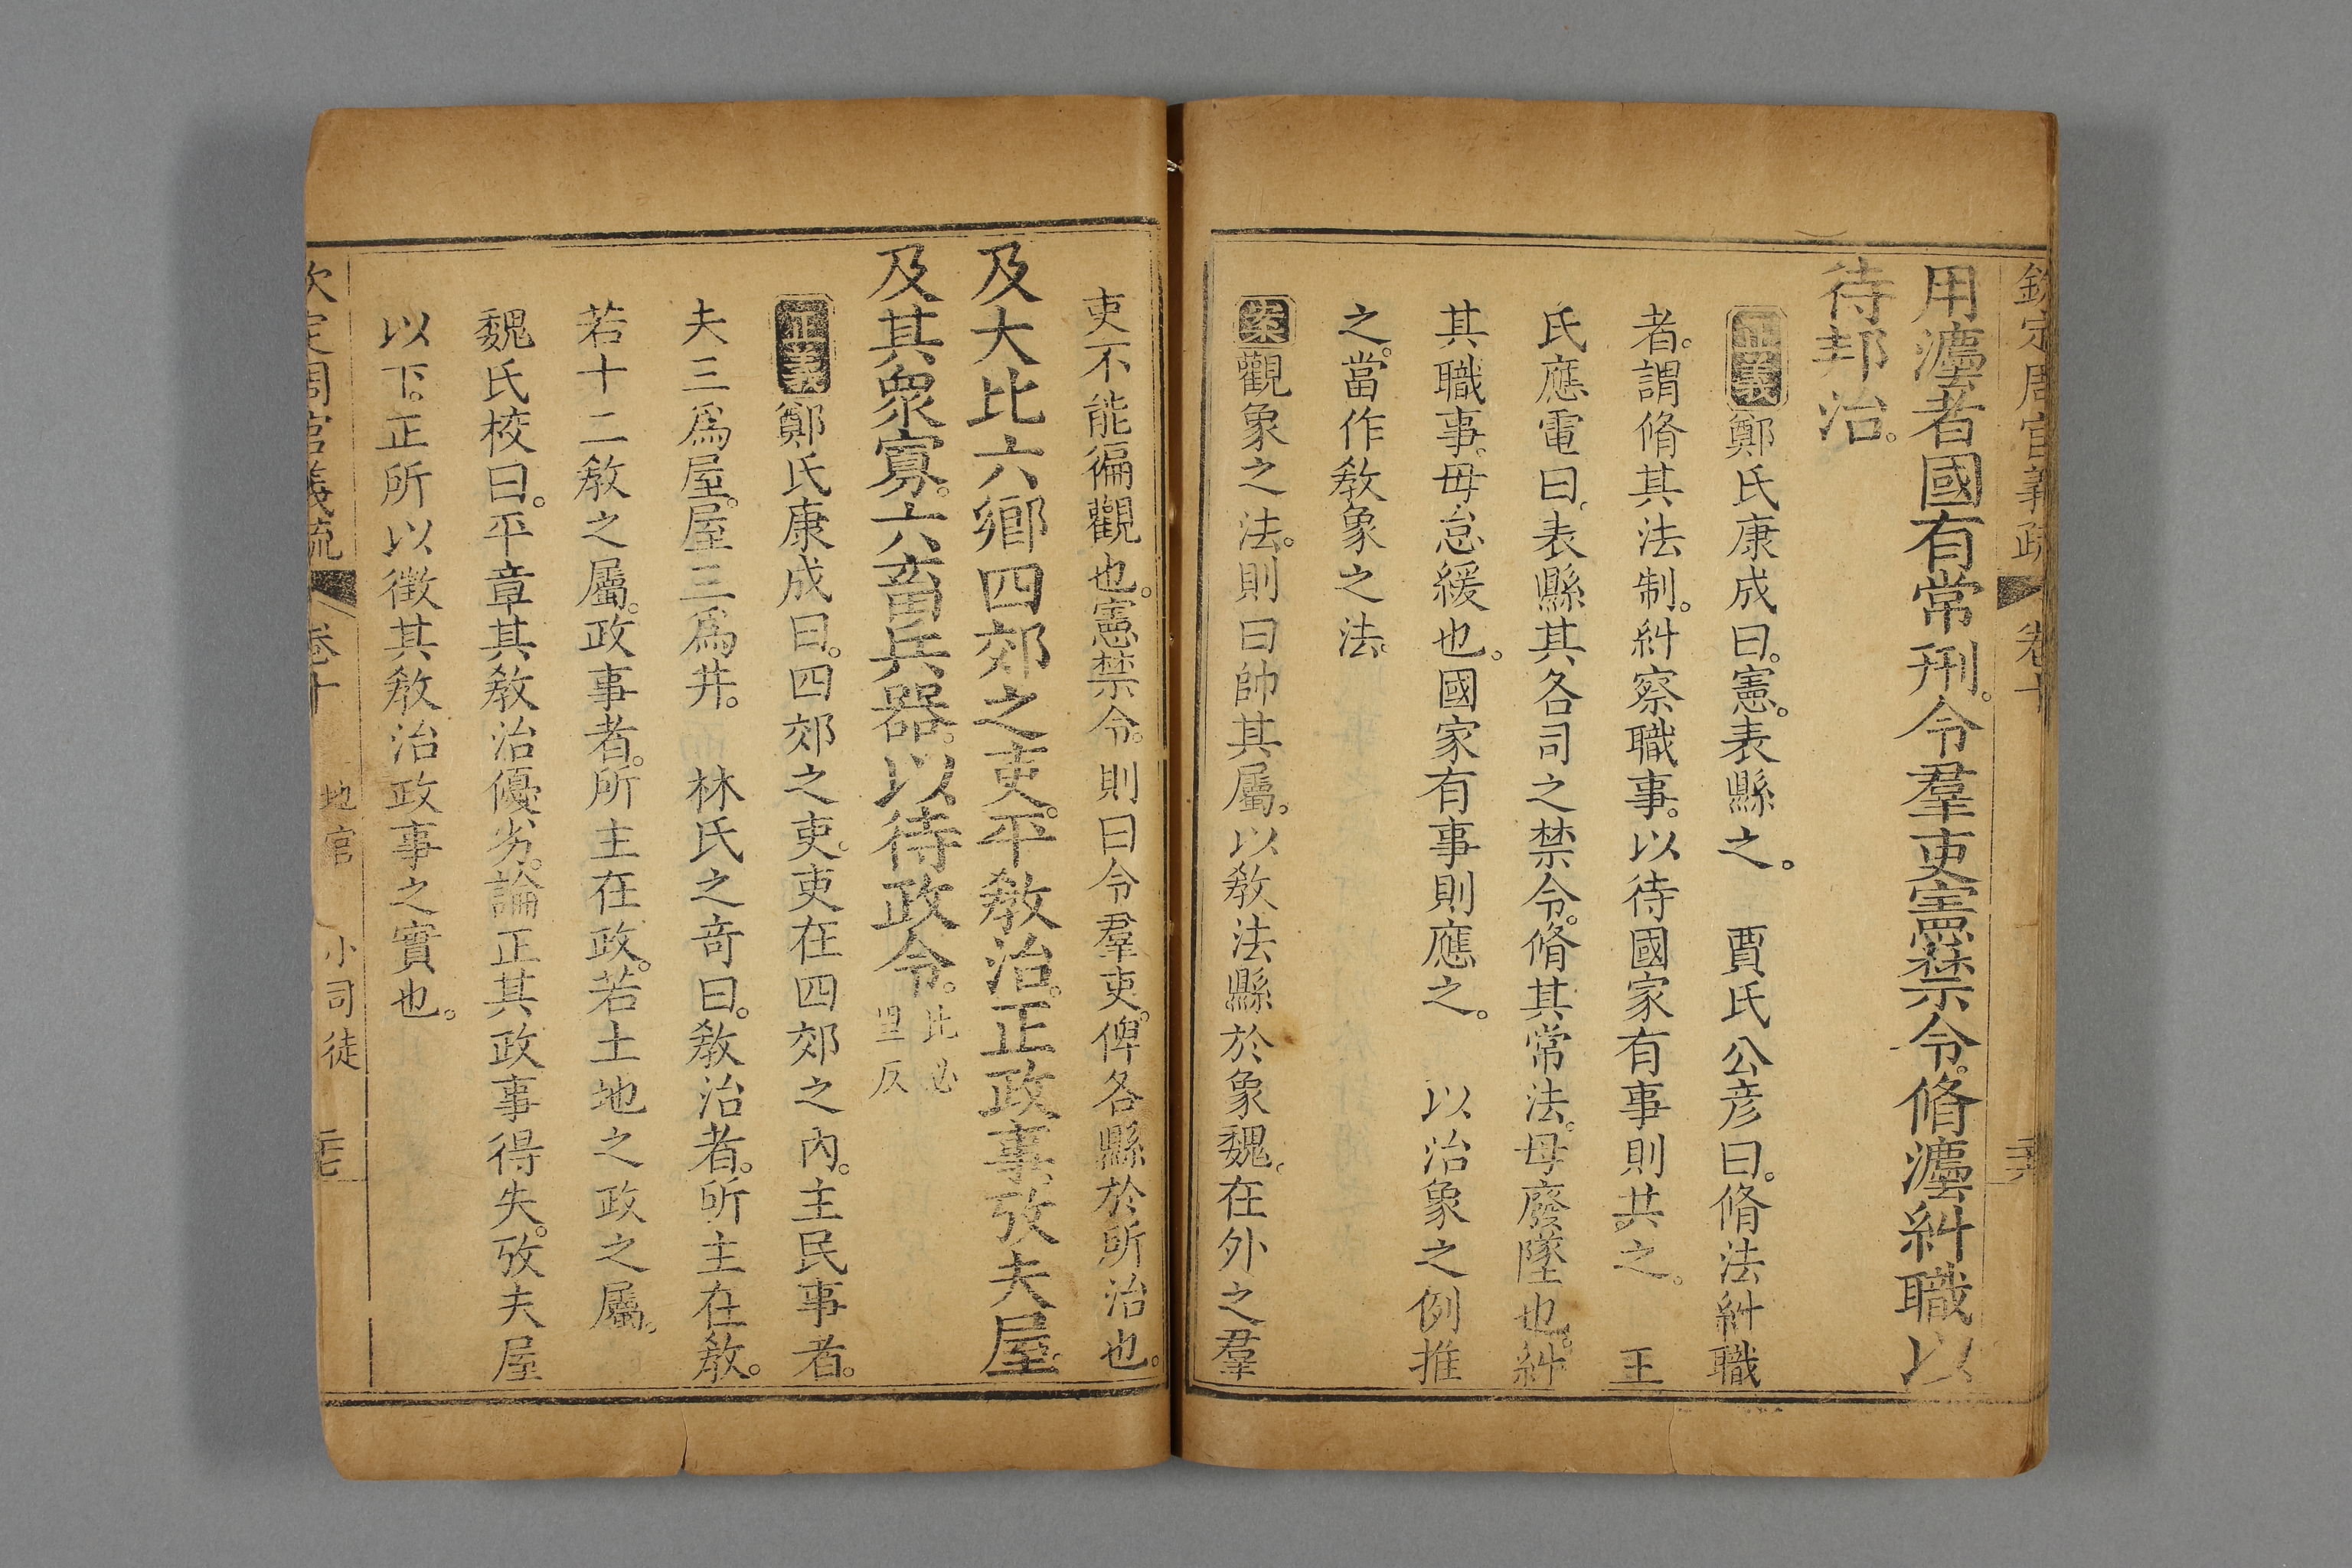 欽定周官義疏 卷十
用灋者國有常刑。令羣吏憲禁令。脩灋糾職以
待邦治。
正義鄭氏康成曰。憲。表縣之。 賈氏公彦曰。脩法糾職
者。謂脩其法制。糾察職事。以待國家有事則共之。 王
氏應電曰。表縣其各司之禁令。脩其常法。毋廢墜也。糾
其職事。毋怠緩也。國家有事則應之。 以治象之例推
之。當作敎象之法。
案觀象之法。則曰帥其屬。以敎法縣於象魏。在外之羣
吏不能徧觀也。憲禁令。則曰令羣吏。俾各縣於所治也。
及大比六鄉四郊之吏。平敎治。正政事。攷夫屋。
及其衆寡。六畜兵器。以待政令。比必里反
正義鄭氏康成曰。四郊之吏。吏在四郊之內。主民事者。
夫三爲屋。屋三爲井。 林氏之奇曰。敎治者。所主在敎。
若十二敎之屬。政事者。所主在政。若土地之政之屬。
魏氏校曰。平章其敎治優劣。論正其政事得失。攷夫屋
以下。正所以徵其敎治政事之實也。
欽定周官義疏 卷十 地官 小司徒